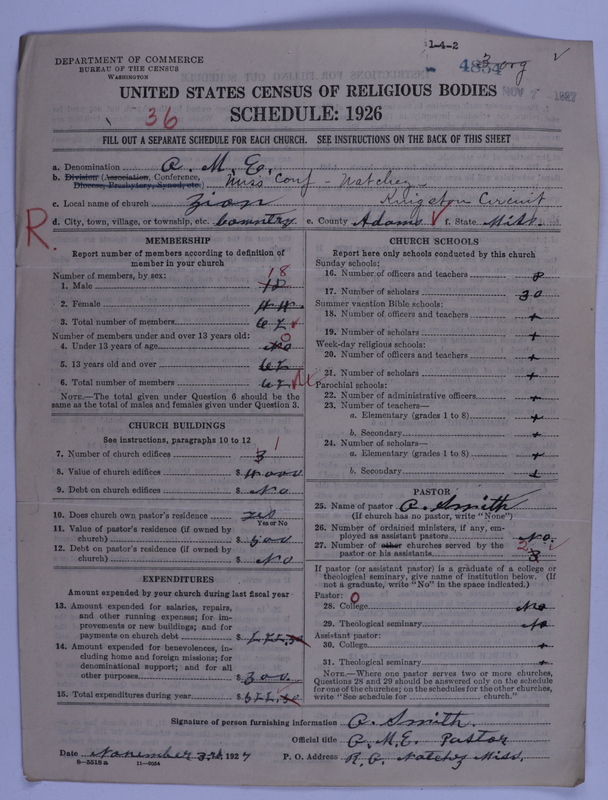 1-4-2
DEPARTMENT OF COMMERCE
BUREAU OF THE CENSUS
WASHINGTON
3 org
UNITED STATES CENSUS OF RELIGIOUS BODIES
36
SCHEDULE: 1926
FILL OUT A SEPARATE SCHEDULE FOR EACH CHURCH. SEE INSTRUCTIONS ON THE BACK OF THIS SHEET
a. Denomination A. M. E.
b. Division (Association, Conference, Diocese, Presbytery, Synod, etc.) Miss Conf - Natchez
Kingston Circuit
c. Local name of church Zion
d. City, town, village, or township, etc. Country e. County Adams f. State Miss.
R.
MEMBERSHIP
Report number of members according to definition of
member in your church
Number of members, by sex:
1. Male 18
2. Female 44
3. Total number of members 62
Number of members under and over 13 years old:
4. Under 13 years of age No 0
5. 13 years old and over 62
6. Total number of members 62
NOTE.—The total given under Question 6 should be the
same as the total of males and females given under Question 3.
CHURCH BUILDINGS
See instructions, paragraphs 10 to 12
7. Number of church edifices 3 1
8. Value of church edifices $
9. Debt on church edifices $ No
10. Does church own pastor's residence
Yes or No
11. Value of pastor's residence (if owned by
church) $
12. Debt on pastor's residence (if owned by
church) $ No
EXPENDITURES
Amount expended by your church during last fiscal year
13. Amount expended for salaries, repairs,
and other running expenses; for im-
provements or new buildings; and for
payments on church debt $
14. Amount expended for benevolences, in-
cluding home and foreign missions; for
denominational support; and for all
other purposes $ 300
15. Total expenditures during year $
CHURCH SCHOOLS
Report here only schools conducted by this church
Sunday schools:
16. Number of officers and teachers 8
17. Number of scholars 30
Summer vacation Bible schools:
18. Number of officers and teachers +
19. Number of scholars +
Week-day religious schools:
20. Number of officers and teachers +
21. Number of scholars +
Parochial schools:
22. Number of administrative officers +
23. Number of teachers—
a. Elementary (grades 1 to 8) +
b. Secondary +
24. Number of scholars—
a. Elementary (grades 1 to 8) +
b. Secondary +
PASTOR
25. Name of pastor A. Smith
(If church has no pastor, write "None")
26. Number of ordained ministers, if any, em-
ployed as assistant pastors No.
27. Number of other churches served by the
pastor or his assistants 3
If pastor (or assistant pastor) is a graduate of a college or
theological seminary, give name of institution below. (If
not a graduate, write "No" in the space indicated.)
Pastor: 0
28. College No
29. Theological seminary No
Assistant pastor:
30. College +
31. Theological seminary +
NOTE.—Where one pastor serves two or more churches,
Questions 28 and 29 should be answered only on the schedule
for one of the churches; on the schedules for the other churches,
write "See schedule for church."
Signature of person furnishing information A. Smith.
Official title A. M. E. Pastor
Date November 3rd, 1927 P. O. Address Natchez Miss.
8—5518a 11—9034